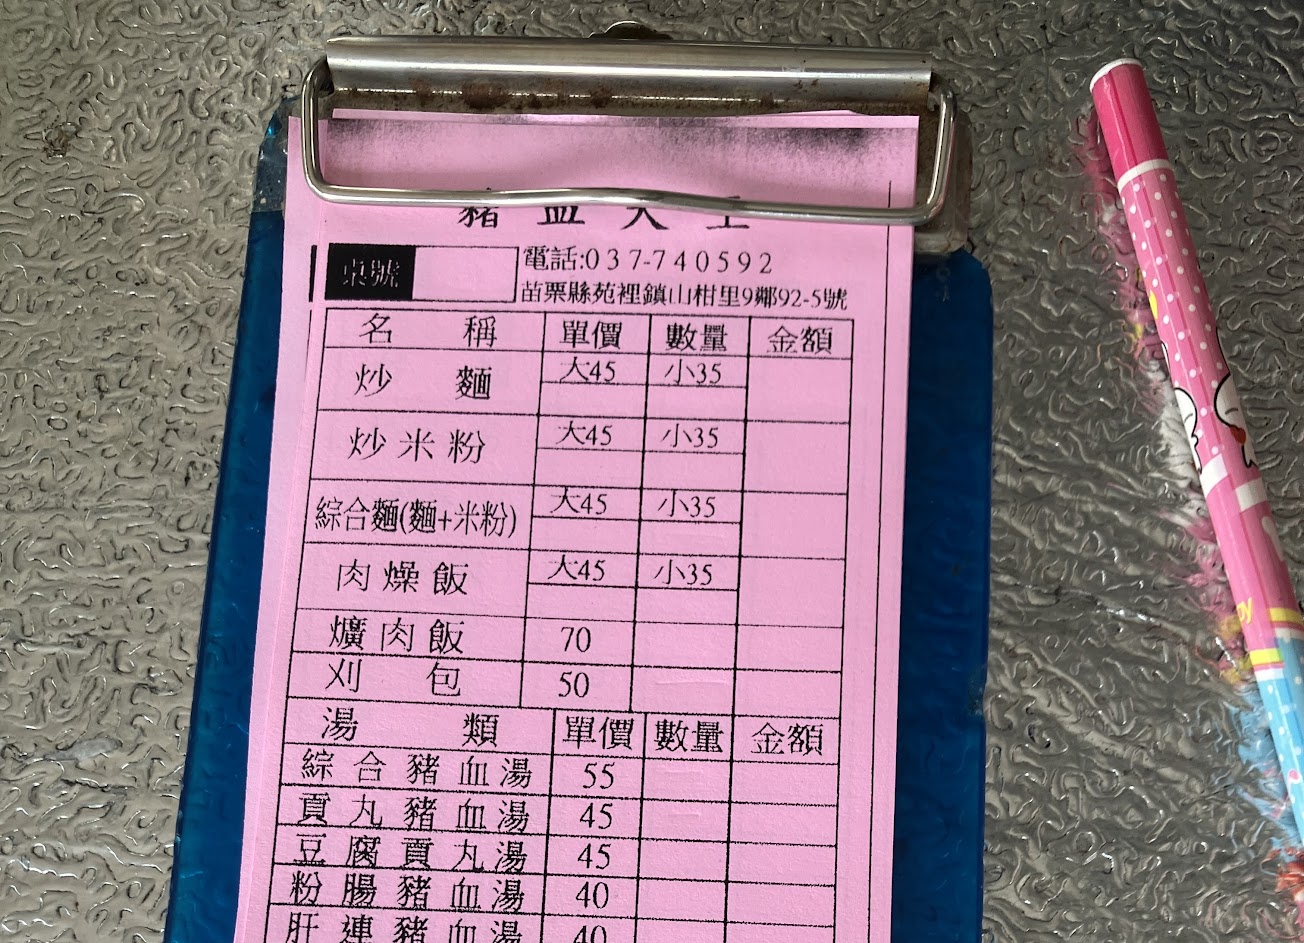 豬血大王
桌號
電話:037-740592
苗栗縣苑裡鎮山柑里9鄰92-5號
名稱 單價 數量 金額
炒麵 大45 小35
炒米粉 大45 小35
綜合麵(麵+米粉) 大45 小35
肉燥飯 大45 小35
爌肉飯 70
刈包 50
湯類 單價 數量 金額
綜合豬血湯 55
貢丸豬血湯 45
豆腐貢丸湯 45
粉腸豬血湯 40
肝連豬血湯 40